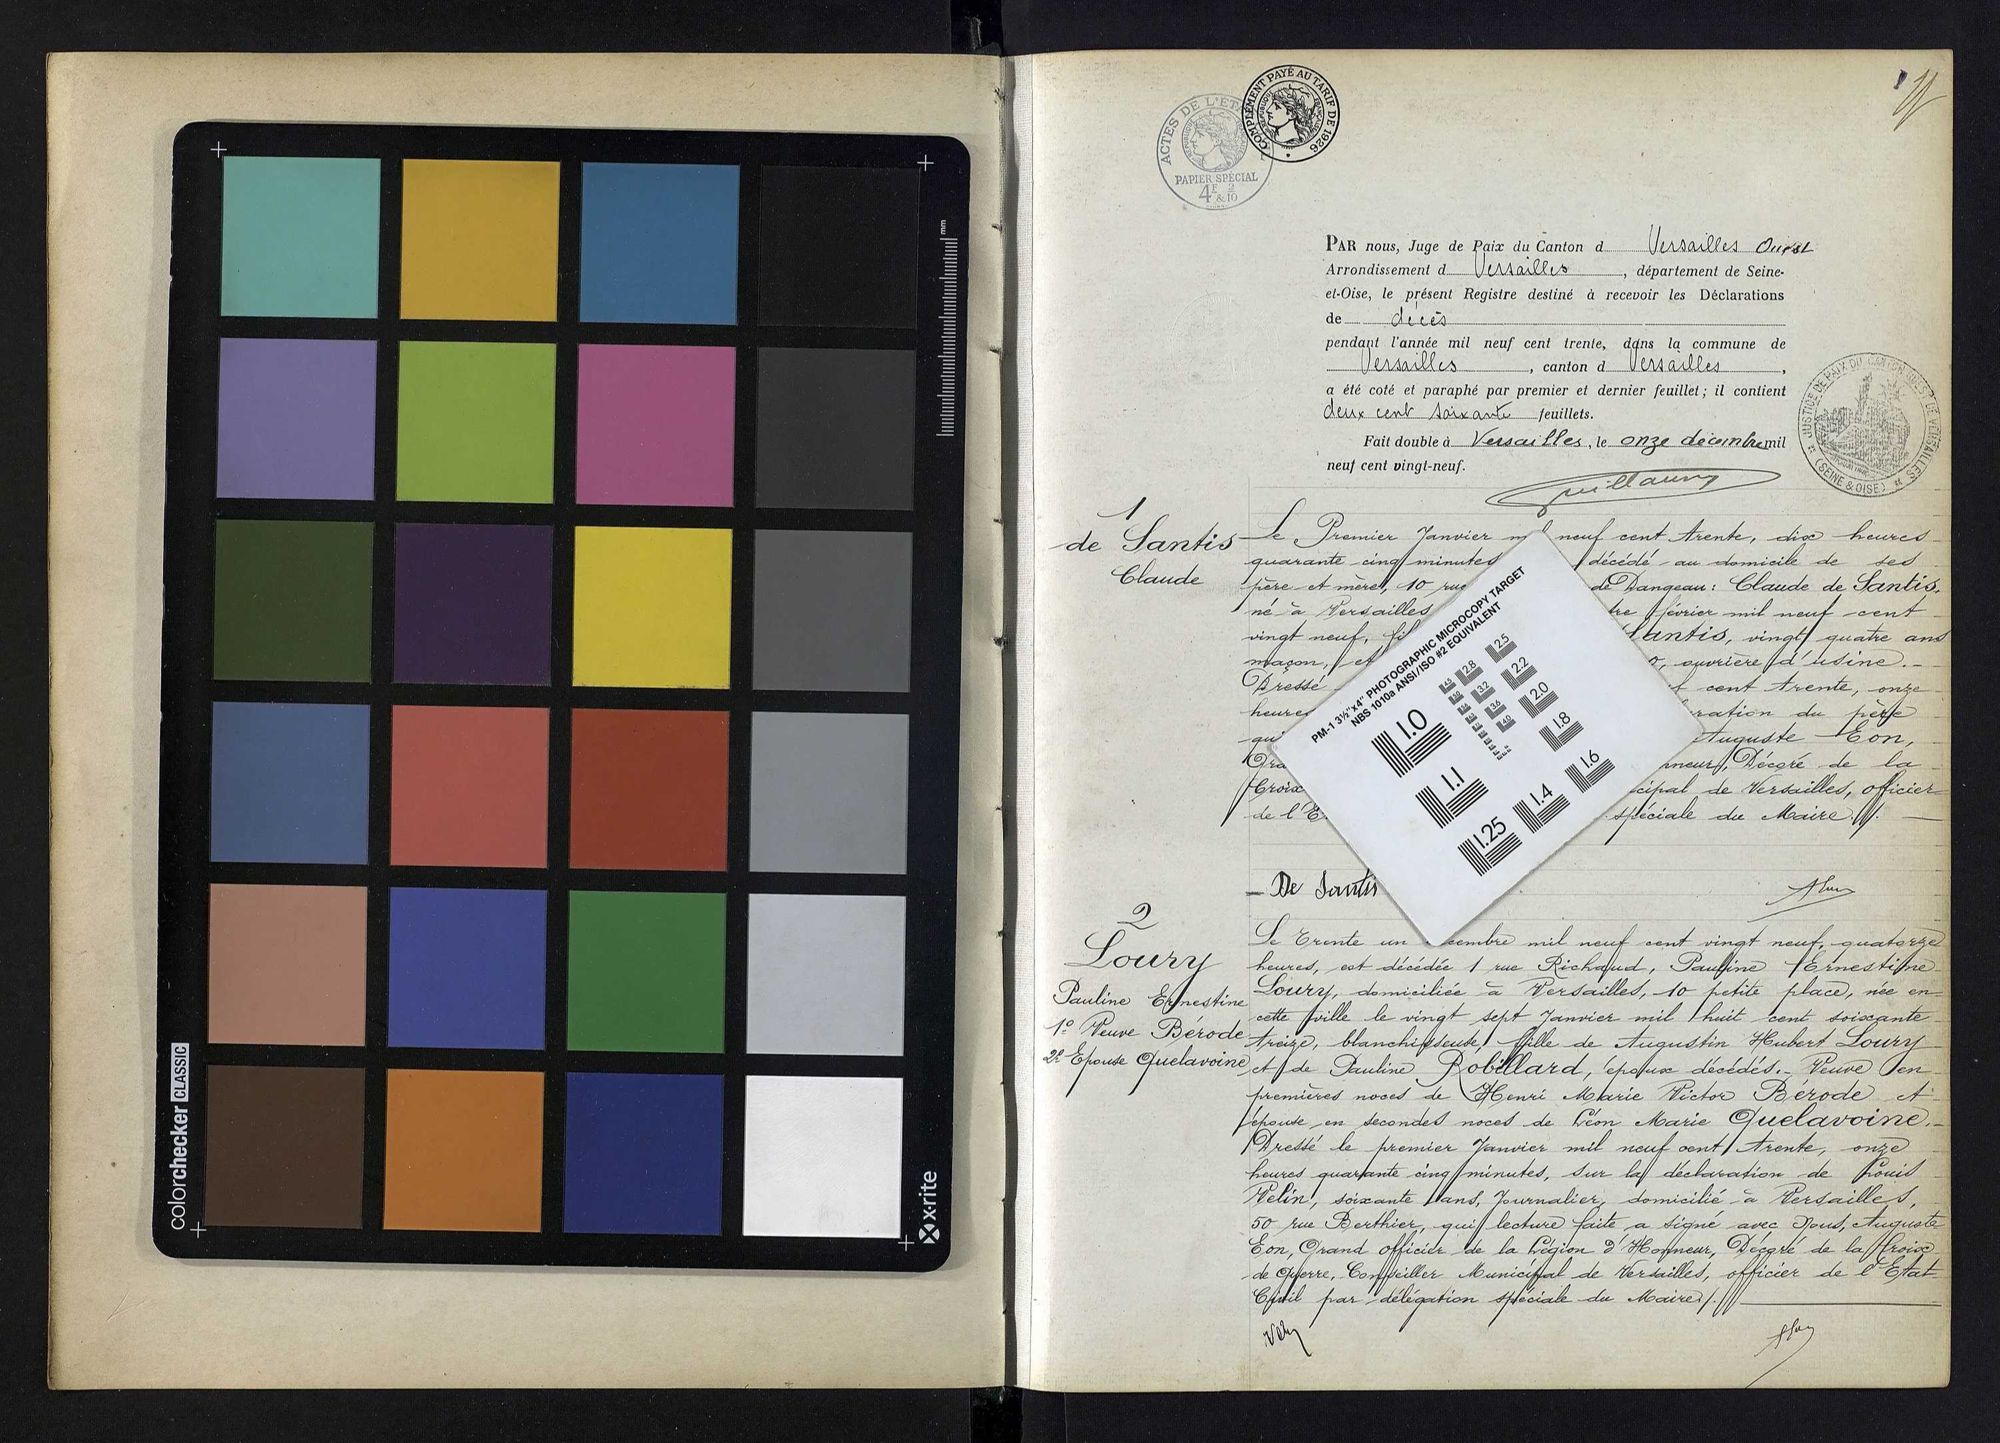 colorchecker CLASSIC
x-rite
mm
ACTES DE L'ÉTAT
PAPIER SPÉCIAL
4F 2
&10
COMPLÉMENT PAYÉ AU TARIF DE 1926
PAR nous, Juge de Paix du Canton d Versailles Ouest
Arrondissement d Versailles, département de Seine-
et-Oise, le présent Registre destiné à recevoir les Déclarations
de décès
pendant l'année mil neuf cent trente, dans la commune de
Versailles, canton d Versailles,
a été coté et paraphé par premier et dernier feuillet; il contient
deux cent soixante feuillets.
Fait double à Versailles, le onze décembre mil
neuf cent vingt-neuf.
Guillaumy
JUSTICE DE PAIX DU CANTON OUEST DE VERSAILLES
(SEINE & OISE)
1
de Santis
Claude
Le Premier Janvier neuf cent trente, dix heures
quarante cinq minutes décédé au domicile de ses
père et mère, 10 rue de Dangeau: Claude de Santis,
né à Versailles février mil neuf cent
vingt neuf, Santis, vingt quatre ans
maçon, et ouvrière d'usine.-
Dressé cent trente, onze
heures du père
qui Auguste Eon,
Décoré de la
Croix de Versailles, officier
de l'E spéciale du Maire./.
PM-1 3½"x4" PHOTOGRAPHIC MICROCOPY TARGET
NBS 1010a ANSI/ISO #2 EQUIVALENT
1.0
1.1
1.25
1.4
1.6
1.8
2.0
2.2
2.5
2.8
3.2
3.6
4.0
De Santis
2
Loury
Pauline Ernestine
1º Veuve Bérode
2º Epouse Quelavoine
Le trente un mil neuf cent vingt neuf, quatorze
heures, est décédée 1 rue Richaud, Pauline Ernestine
Loury, domiciliée à Versailles, 10 petite place, née en
cette ville le vingt sept Janvier mil huit cent soixante
treize, blanchisseuse, fille de Augustin Hubert Loury
et de Pauline Robillard, époux décédés.- Veuve en
premières noces de Henri Marie Victor Bérode et
épouse en secondes noces de Léon Marie Quelavoine.-
Dressé le premier Janvier mil neuf cent trente, onze
heures quarante cinq minutes, sur la déclaration de Louis
Velin, soixante ans, Journalier, domicilié à Versailles,
50 rue Berthier, qui lecture faite a signé avec Nous, Auguste
Eon, Grand officier de la Légion d'Honneur, Décoré de la Croix
de Guerre, Conseiller Municipal de Versailles, officier de l'Etat
Civil par délégation spéciale du Maire./.